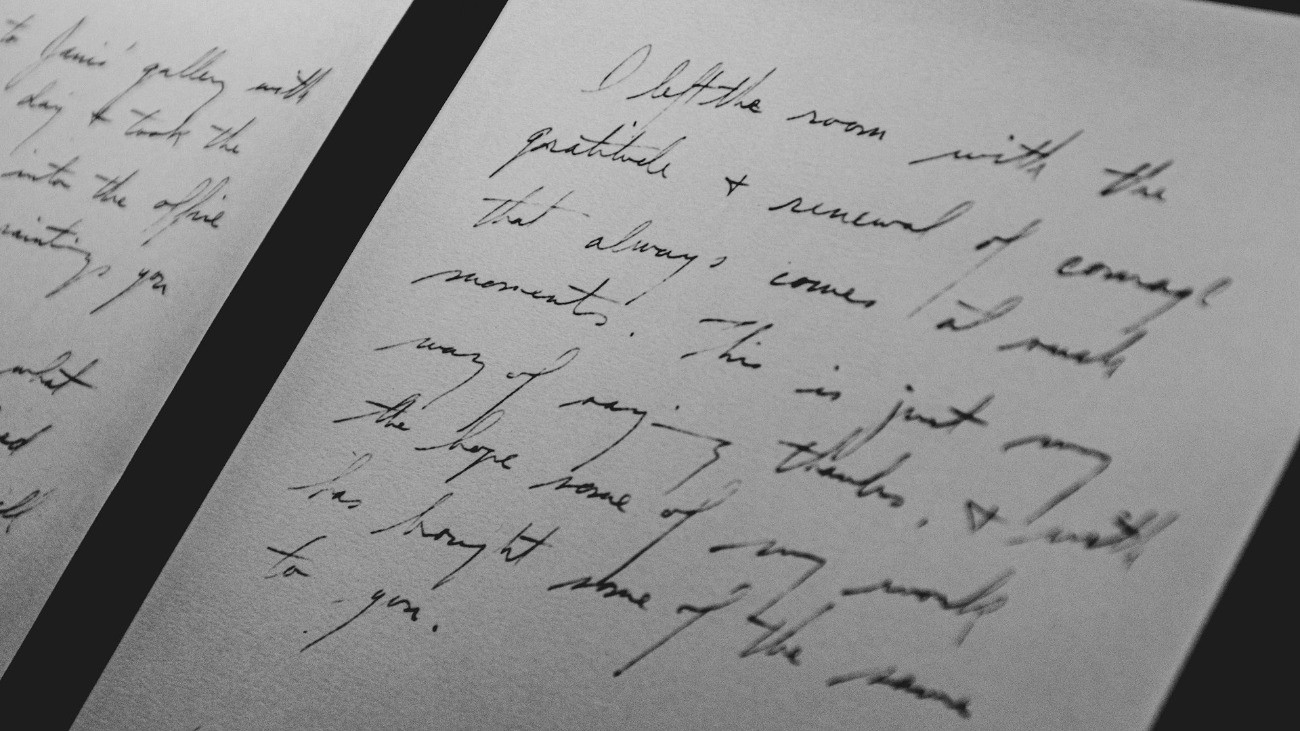 to Janis' gallery with
day & took the
into the office
paintings you
what
ed
ell
I left the room with the
gratitude & renewal of courage
that always comes at such
moments. This is just my
way of saying thanks, & with
the hope some of my work
has brought some of the same
to you.